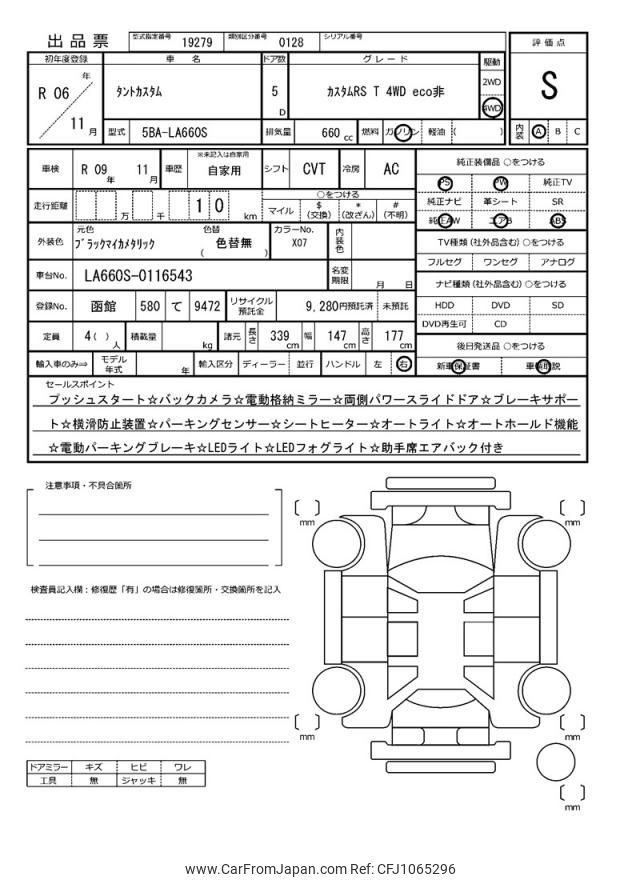 出品票 型式指定番号 19279 類別区分番号 0128 シリアル番号
評価点
S
内装 A B C
初年度登録 車名 ドア数 グレード 駆動
R 06 年 11 月 タントカスタム 5 D カスタムRS T 4WD eco非 2WD 4WD
型式 5BA-LA660S 排気量 660 cc 燃料 ガソリン 軽油 ( )
車検 R 09 年 11 月 車歴 ※未記入は自家用 自家用 シフト CVT 冷房 AC
走行距離 万 千 1 0 km ○をつける マイル $ (交換) * (改ざん) # (不明)
外装色 元色 ブラックマイカメタリック 色替 ( 色替無 ) カラーNo. X07 内装色
車台No. LA660S-0116543 名変期限 月 日
登録No. 函館 580 て 9472 リサイクル預託金 9,280円預託済 未預託
定員 4( )人 積載量 kg 諸元 長さ 339 cm 幅 147 cm 高さ 177 cm
輸入車のみ⇒ モデル年式 年 輸入区分 ディーラー 並行 ハンドル 左 右
純正装備品 ○をつける
PS PW 純正TV
純正ナビ 革シート SR
純正AW エアB ABS
TV種類 (社外品含む) ○をつける
フルセグ ワンセグ アナログ
ナビ種類 (社外品含む) ○をつける
HDD DVD SD
DVD再生可 CD
後日発送品 ○をつける
新車保証書 車輌取説
セールスポイント
プッシュスタート☆バックカメラ☆電動格納ミラー☆両側パワースライドドア☆ブレーキサポー
ト☆横滑防止装置☆パーキングセンサー☆シートヒーター☆オートライト☆オートホールド機能
☆電動パーキングブレーキ☆LEDライト☆LEDフォグライト☆助手席エアバック付き
注意事項・不具合箇所
検査員記入欄：修復歴「有」の場合は修復箇所・交換箇所を記入
ドアミラー キズ ヒビ ワレ
工具 無 ジャッキ 無
[ ] mm
[ ] mm
[ ] mm
[ ] mm
[ ] mm
www.CarFromJapan.com Ref: CFJ1065296